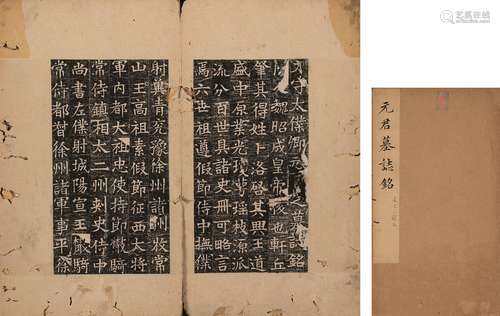 守太僕卿之墓誌銘
人魏昭成皇帝之後也軒丘
肇其得姓卜洛啓其興王道
盛中原業光瑤枝源派
流分百世具諸史冊可略言
焉六世祖遵假節侍中撫僕
射冀青兗豫徐州諸州牧常
山王高祖素假節征西大將
軍內都大祖忠使持節散騎
常侍鎮相太二州刺史侍中
尚書左僕射城陽宣王散騎
常侍都督徐州諸軍事平徐
元君墓誌銘